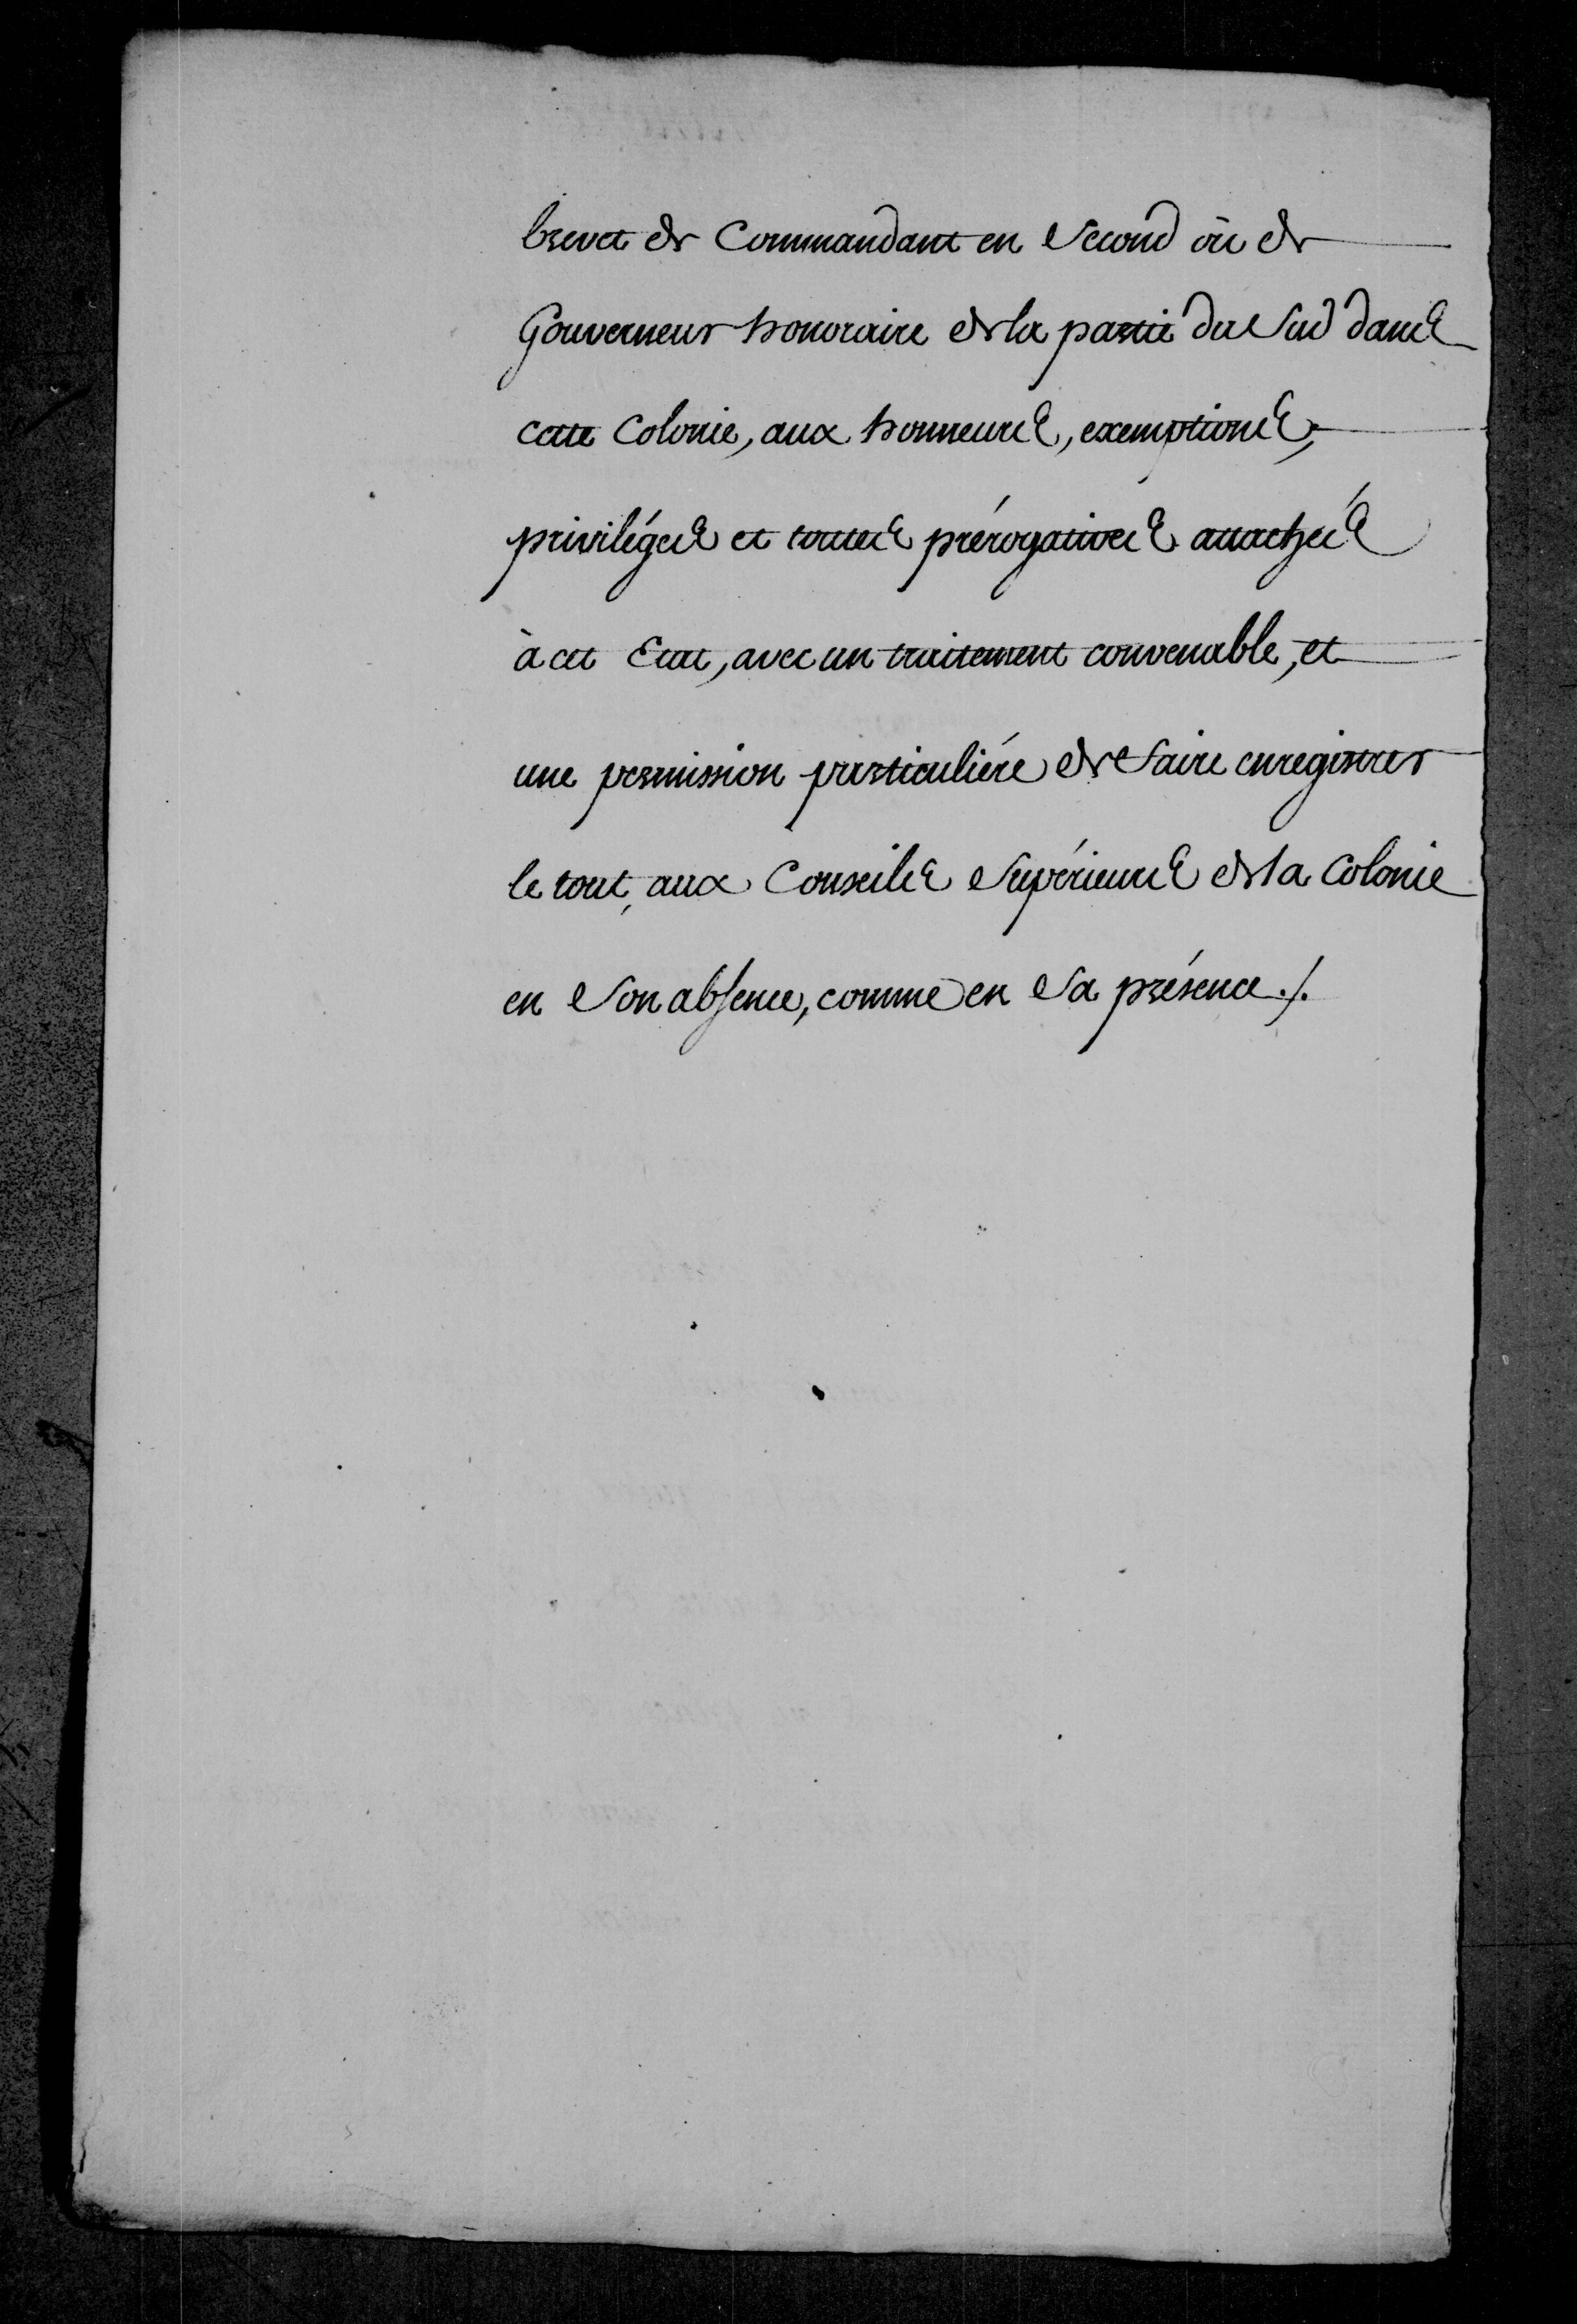 brevet de Commandant en Second où de
Gouverneur honoraire de la partie du Sud dans
cette Colonie, aux honneurs, exemptions,
priviléges et toutes prérogatives attachés
à cet Etat, avec un traitement convenable, et
une permission particuliére de faire enregistrer
le tout, aux Conseils Supérieurs de la Colonie
en Son absence, comme en Sa présence./.